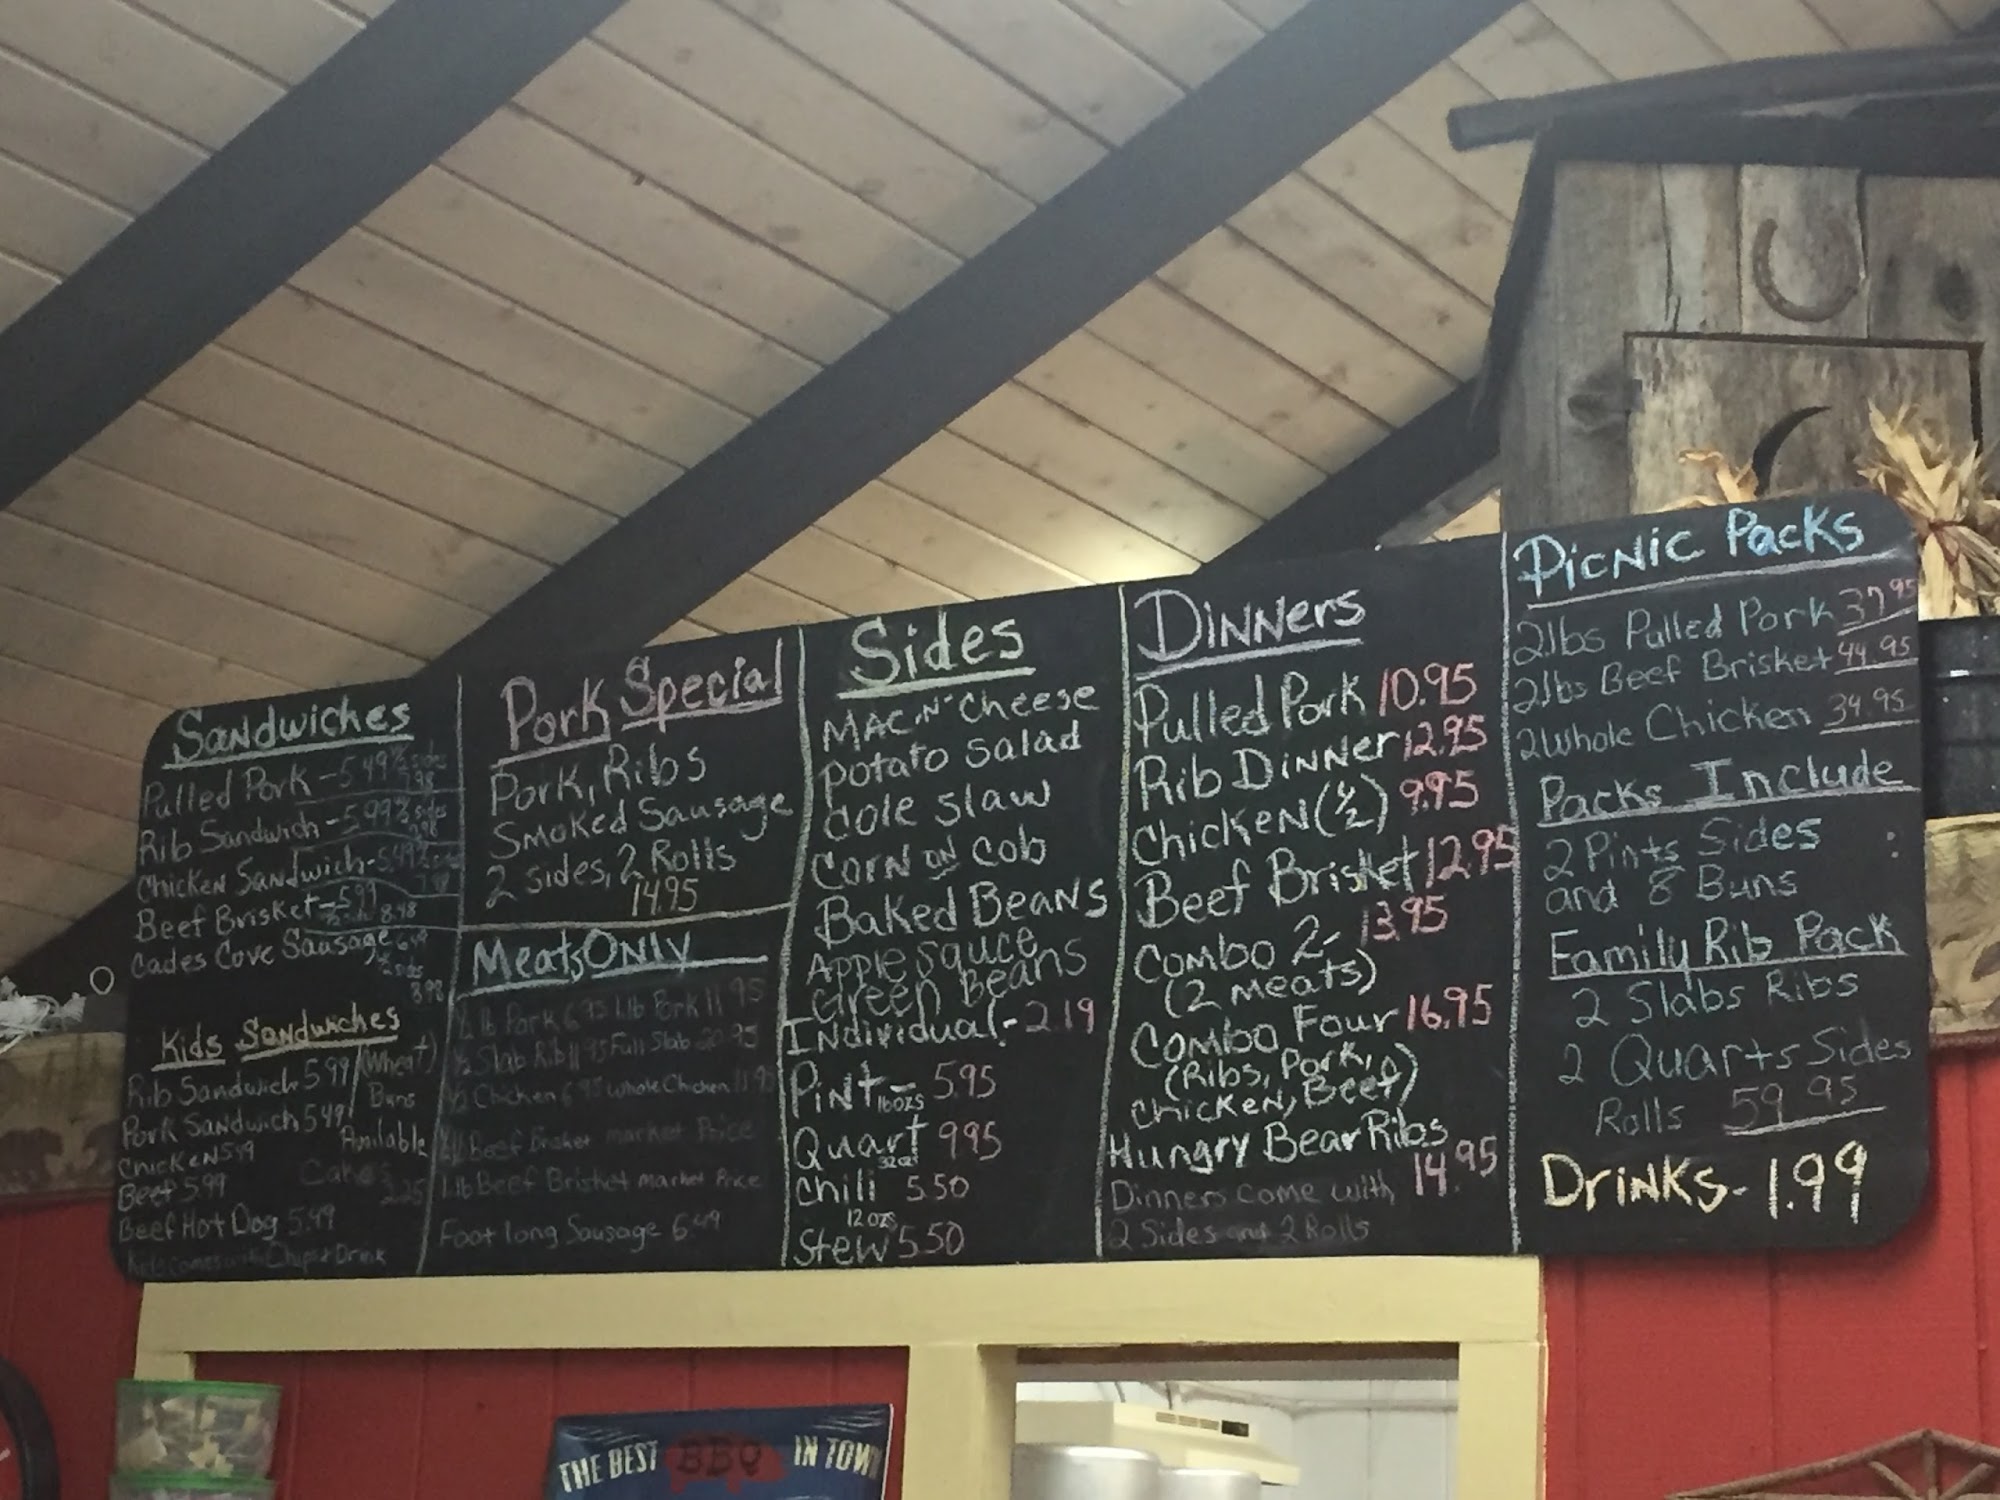 Sandwiches
Pulled Pork - 5.49 w/2 sides 7.98
Rib Sandwich - 5.99 w/2 sides
Chicken Sandwich - 5.49
Beef Brisket - 5.99
8.48
Cades Cove Sausage 6.49
w/2 sides
8.98
Kids Sandwiches
Rib Sandwich 5.99 (Wheat)
Pork Sandwich 5.49 Buns
Chicken 5.49 Available
Beef 5.99
Beef Hot Dog 5.49
Kids comes with Chips & Drink
Pork Special
Pork, Ribs
Smoked Sausage
2 sides, 2 Rolls
14.95
Meats Only
½ lb Pork 6.95 1 lb Pork 11.95
½ Slab Rib 11.95 Full Slab 20.95
½ Chicken 6.95 Whole Chicken 11.95
Beef Brisket market Price
1 lb Beef Brisket market Price
Foot long Sausage 6.49
Sides
Mac 'N' Cheese
Potato Salad
Cole Slaw
Corn on Cob
Baked Beans
Apple Sauce
Green Beans
Individual - 2.19
Pint - 16ozs 5.95
Quart 32oz 9.95
Chili 5.50
12 ozs
Stew 5.50
Dinners
Pulled Pork 10.95
Rib Dinner 12.95
Chicken (½) 9.95
Beef Brisket 12.95
Combo 2 - 13.95
(2 meats)
Combo Four 16.95
(Ribs, Pork,
Chicken, Beef)
Hungry Bear Ribs
14.95
Dinners come with
2 Sides and 2 Rolls
Picnic Packs
2lbs Pulled Pork 37.95
2lbs Beef Brisket 44.95
2 Whole Chicken 34.95
Packs Include
2 Pints Sides
and 8 Buns
Family Rib Pack
2 Slabs Ribs
2 Quarts Sides
Rolls 59.95
Drinks - 1.99
THE BEST BBQ IN TOWN